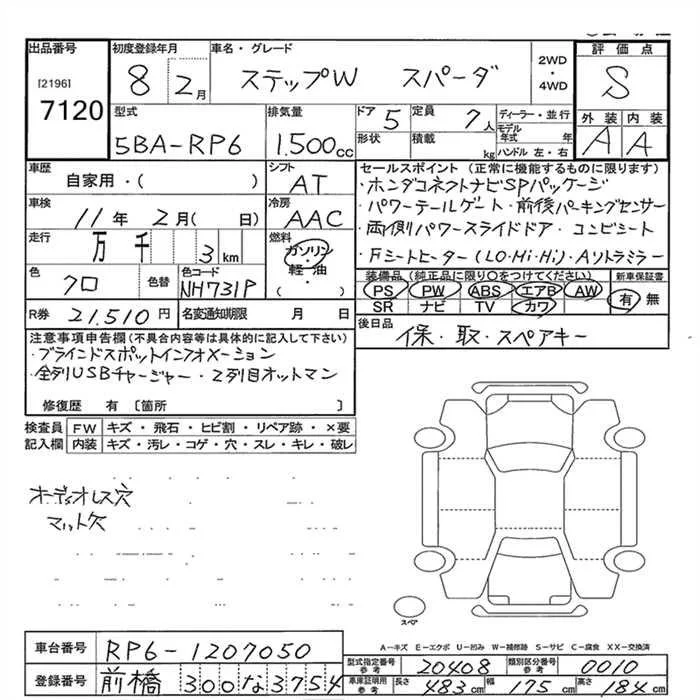 出品番号 初度登録年月 車名・グレード 2WD・4WD 評価点
[2196] 8 2月 ステップW スパーダ S
7120
型式 排気量 ドア 5 定員 7人 ディーラー・並行 外装 内装
5BA-RP6 1.500cc 形状 積載 kg モデル年式 年 A A
ハンドル 左・右
車歴 シフト セールスポイント (正常に機能するものに限ります)
自家用・( ) AT ・ホンダコネクトナビSPパッケージ
車検 冷房 ・パワーテールゲート・前後パーキングセンサー
11年 2月( 日) AAC ・両側パワースライドドア・コンビシート
走行 万 千 3 km 燃料 ガソリン・軽・油・( ) ・Fシートヒーター(LO・Hi・Hi)・Aソトラミラー
色 クロ 色替 色コード NH731P 装備品(純正品に限り○をつけてください) 新車保証書
PS PW ABS エアB AW 有 無
SR ナビ TV カワ
R券 21,510円 名変通知期限 月 日 後日品
保・取・スペアキー
注意事項申告欄(不具合内容等は具体的に記入して下さい)
・ブラインドスポットインフォメーション
・全列USBチャージャー・2列目オットマン
修復歴 有 〔箇所 〕
検査員 FW キズ・飛石・ヒビ割・リペア跡・×要
記入欄 内装 キズ・汚レ・コゲ・穴・スレ・キレ・破レ
オーディオレス穴
マット欠
スペア
A-キズ E-エクボ U-凹み W-補修跡 S-サビ C-腐食 XX-交換済
車台番号 RP6-1207050 型式指定番号 参考 20408 類別区分番号 参考 0010
登録番号 前橋 300な3754 車庫証明用 参考 長さ 483cm 幅 175cm 高さ 184cm